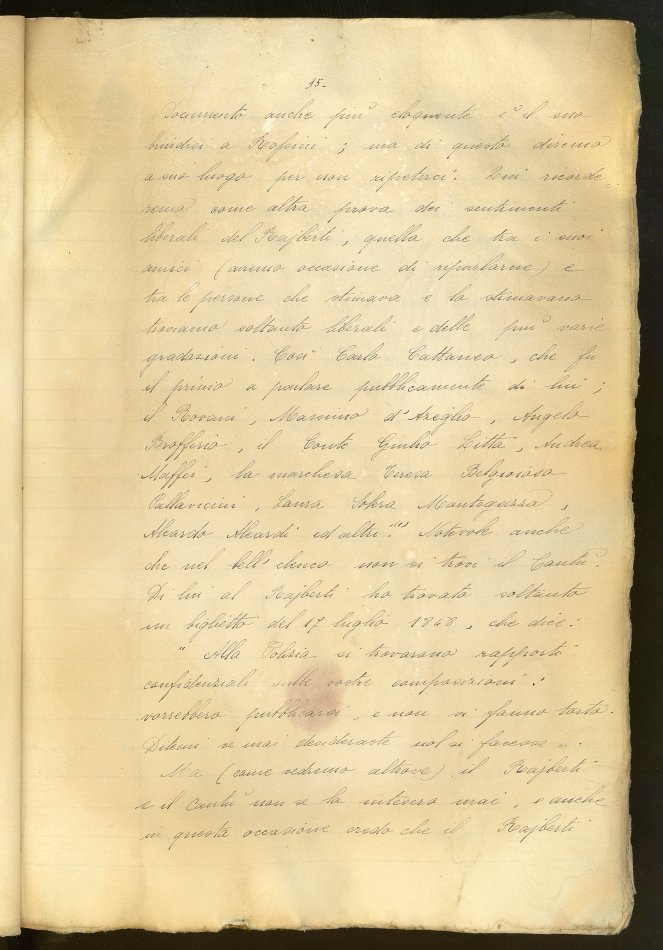 15.
Documento anche più eloquente è il suo
brindisi a Rossini; ma di questo diremo
a suo luogo per non ripeterci. Qui ricorde-
remo come altra prova dei sentimenti
liberali del Rajberti, quella che tra i suoi
amici (avremo occasione di riparlarne) e
tra le persone che stimava e lo stimavano
troviamo soltanto liberali e delle più varie
gradazioni. Così Carlo Cattaneo, che fu
il primo a parlare pubblicamente di lui;
il Rovani, Massimo d'Azeglio, Angelo
Brofferio, il Conte Giulio Litta, Andrea
Maffei, la marchesa Teresa Belgioioso
Pallavicini, Laura Solera Mantegazza,
Aleardo Aleardi ed altri.(1) Notevole anche
che nel bell'elenco non si trovi il Cantù.
Di lui al Rajberti ho trovato soltanto
un biglietto del 17 luglio 1848, che dice:
" Alla Polizia si trovarono rapporti
confidenziali sulle vostre composizioni:
vorrebbero pubblicarsi, e non vi fanno torto.
Ditemi se mai desideraste nol si facesse ".
Ma (come vedremo altrove) il Rajberti
e il Cantù non se la intesero mai, e anche
in questa occasione credo che il Rajberti